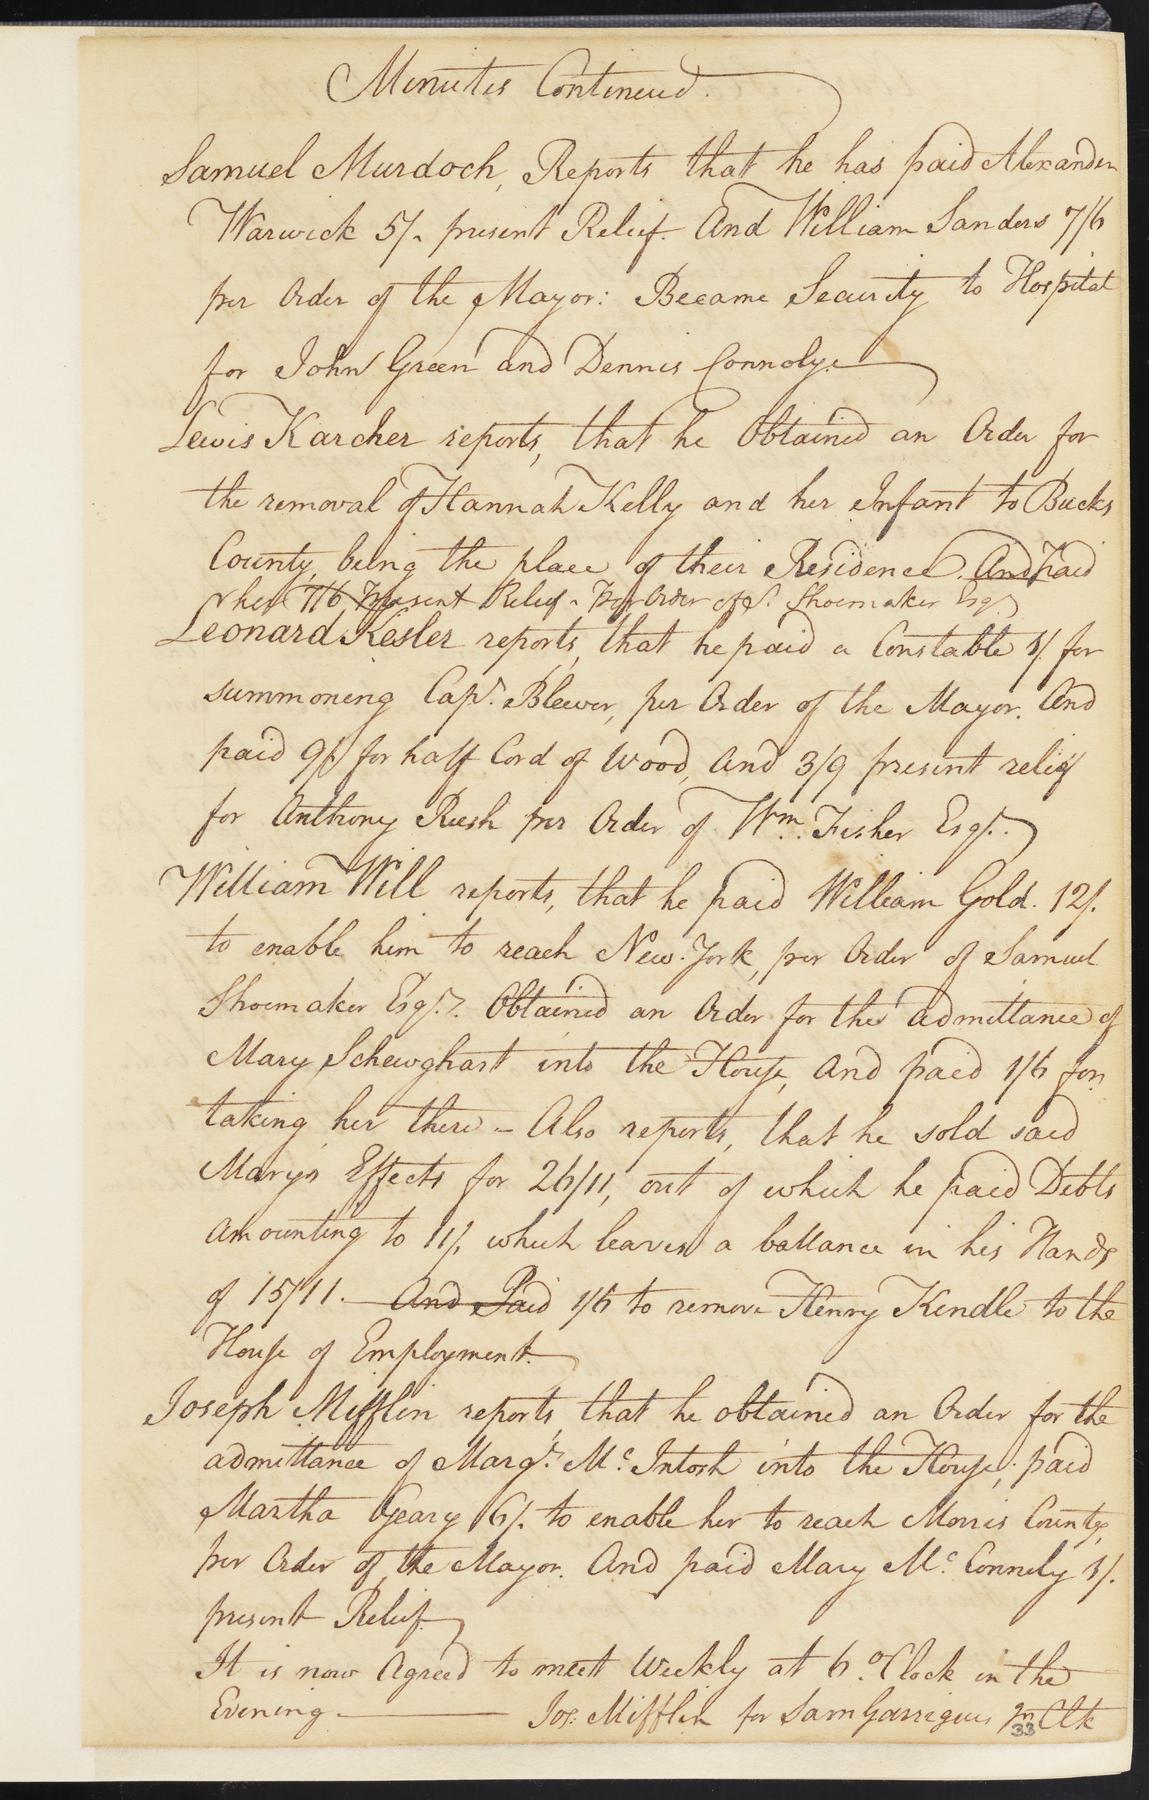 Minutes Continued.
Samuel Murdoch, Reports that he has paid Alexander
Warwick 5/. present Relief. And William Sanders 7/6
per Order of the Mayor: Became Security to Hospital
for John Green and Dennis Connoly.
Lewis Karcher reports, that he Obtained an Order for
the removal of Hannah Kelly and her Infant to Bucks
County, being the place of their Residence. And Paid
her 7/6 Present Relief - Per Order of S. Shoemaker Esqr.
Leonard Kesler reports, that he paid a Constable 3/. for
summoning Capt. Blewer, per Order of the Mayor. And
paid 9/. for half Cord of Wood, and 3/9 present relief
for Anthony Rush per Order of Wm. Fisher Esqr.
William Will reports, that he paid William Gold. 12/.
to enable him to reach New-York, per Order of Samuel
Shoemaker Esqr. Obtained an Order for the admittance of
Mary Schewghast into the House, and paid 1/6 for
taking her there - Also reports, that he sold said
Marys Effects for 26/11, out of which he paid Debts
amounting to 11/. which leaves a ballance in his Hands
of 15/11. And Paid 1/6 to remove Henry Kendle to the
House of Employment.
Joseph Mifflin reports, that he obtained an Order for the
admittance of Margt. Mc Intosh into the House; paid
Martha Geary 6/. to enable her to reach Morris County,
per Order of the Mayor. And paid Mary Mc Connely 3/.
present Relief.
It is now Agreed to meet Weekly at 6 oClock in the
Evening. Jos: Mifflin for Sam Garrigues Jn Clk
33